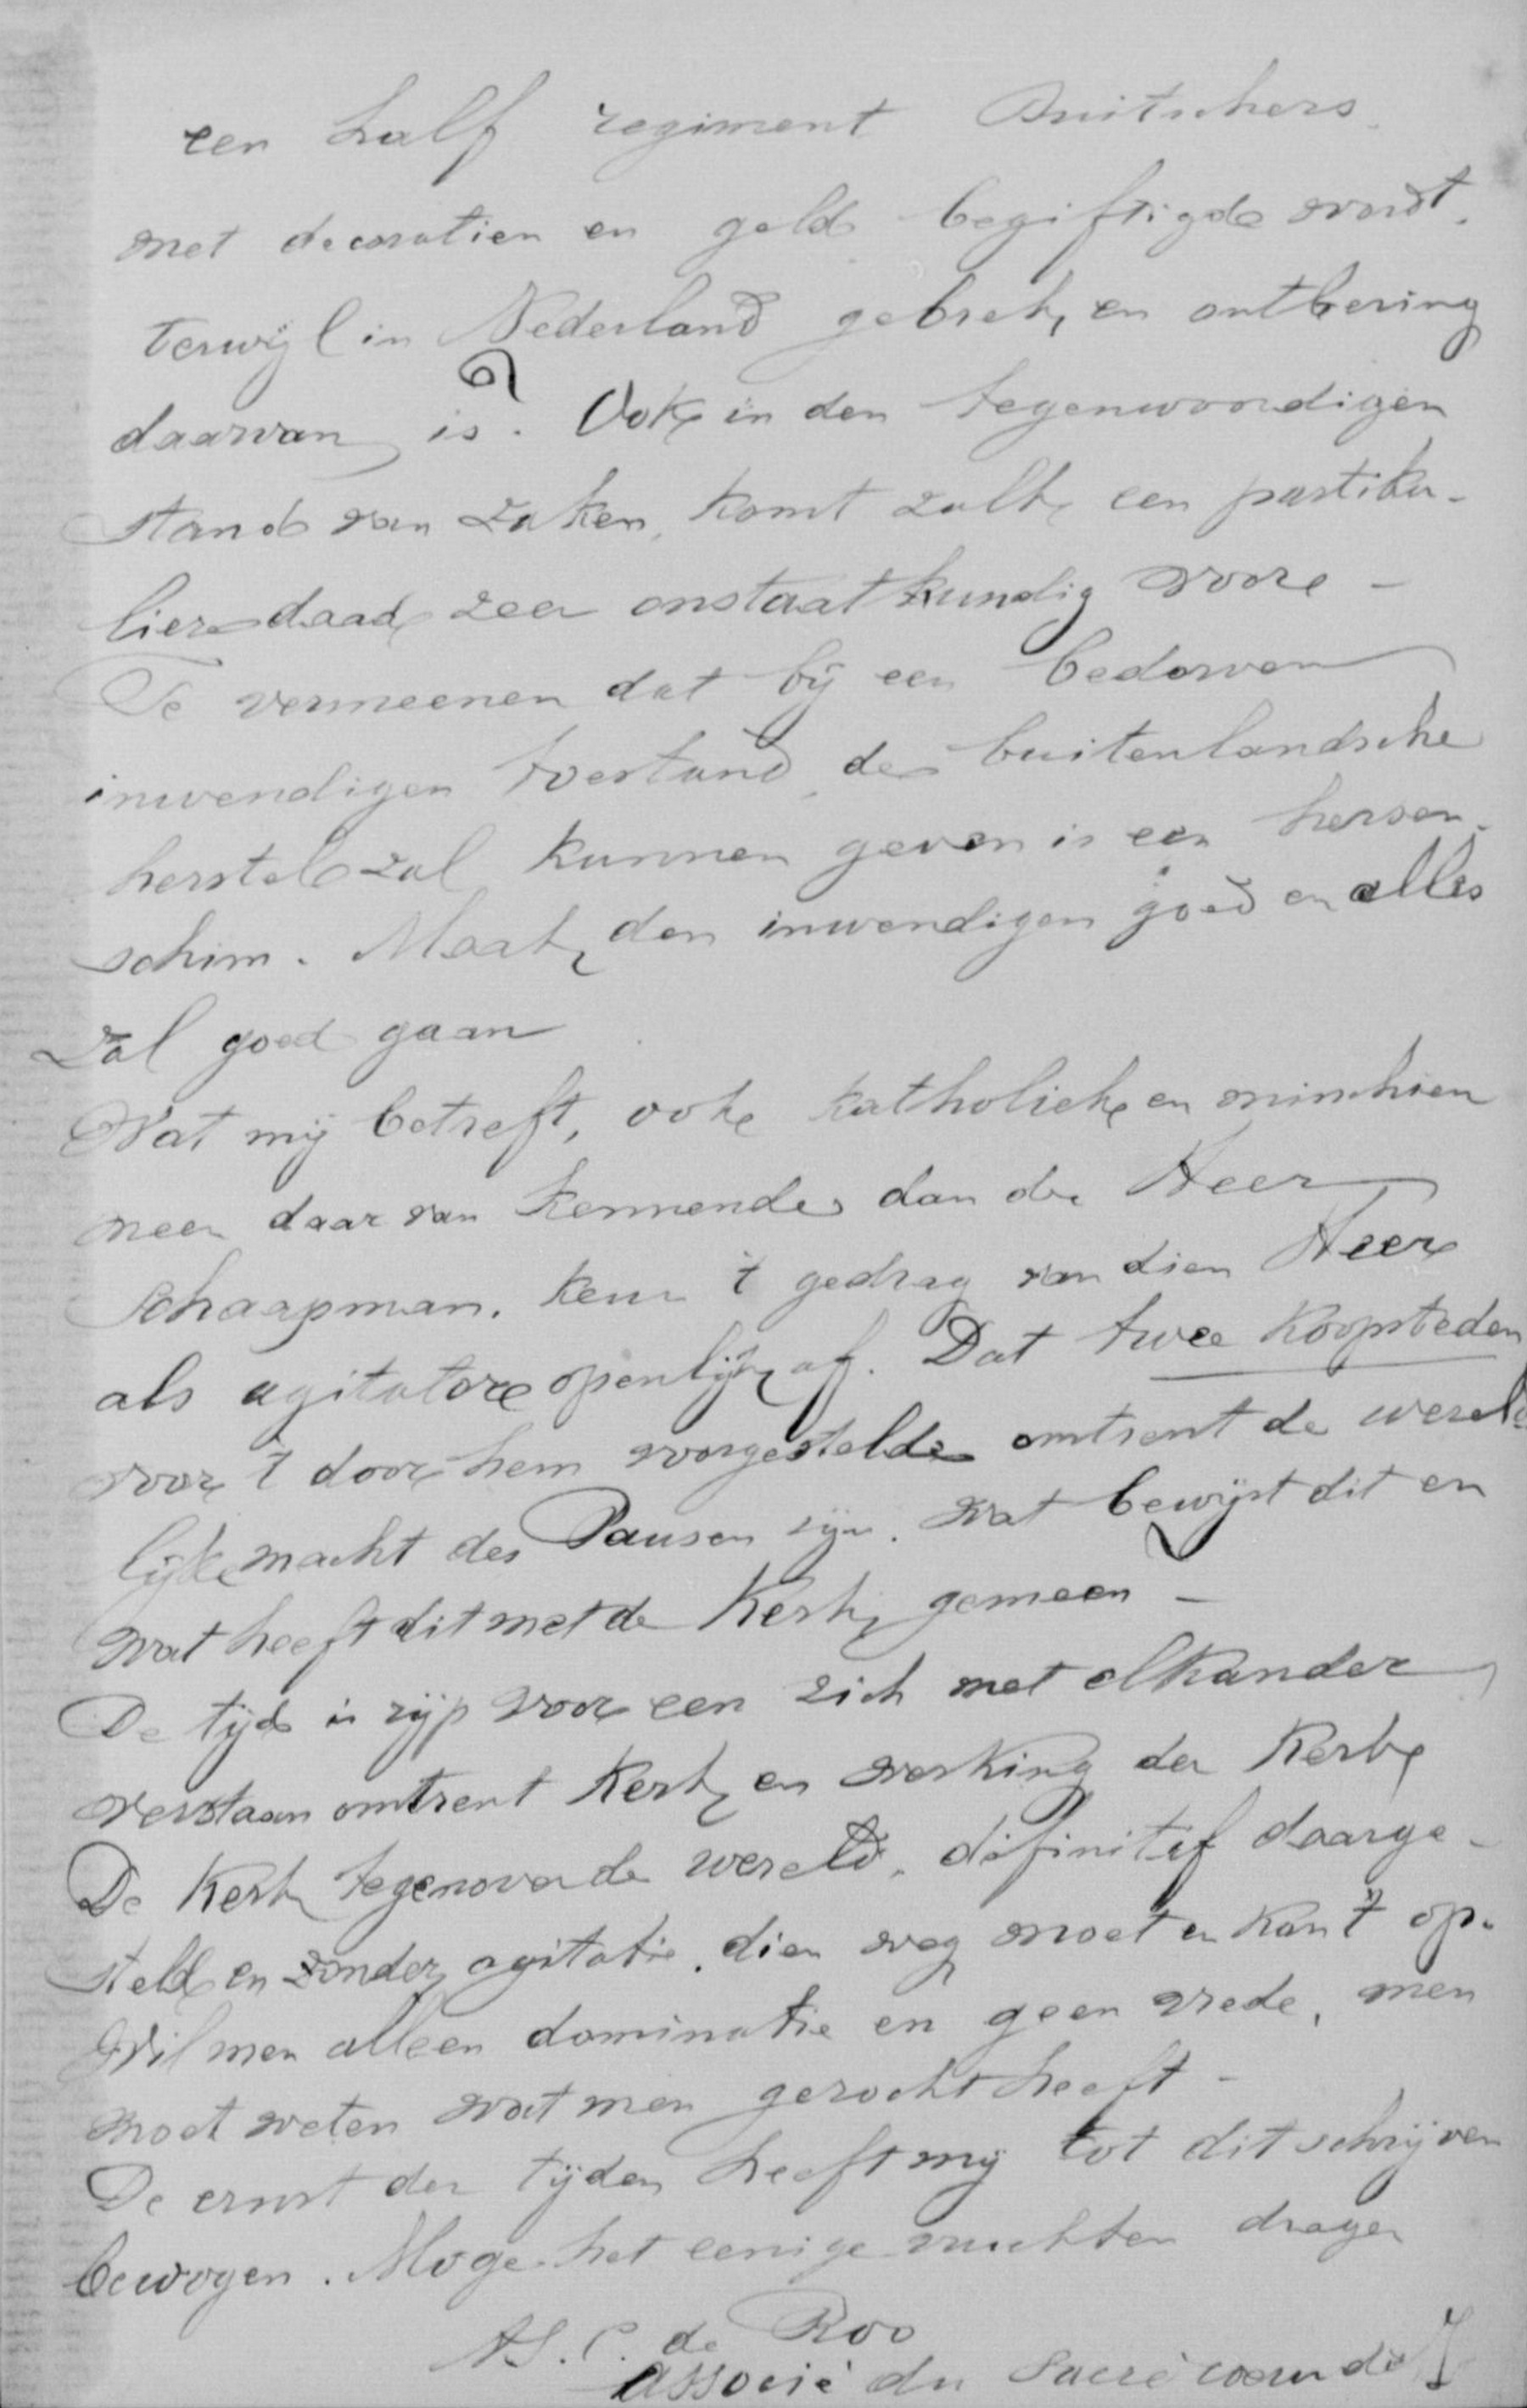 een half regiment Duitschers
met decoratien en geld begiftigde wordt,
terwijl in Nederland gebrek, en ontbering
daarvan is. Ook in den tegenwoordigen
stand van zaken, komt zulk een partiku-
liere daad zeer onstaatkundig voor -
Te vermeenen dat bij een bedorven
inwendigen toestand, de buitenlandsche
herstel zal kunnen geven is een hersen-
schim. Maak den inwendigen goed en alles
zal goed gaan
Wat mij betreft, ook katholiek en misschien
meer daar van kennende dan de Heer
Schaapman. keur 't gedrag van dien Heer
als agitator openlijk af. Dat twee Koopsteden
voor 't door hem voorgestelde omtrent de wereld-
lijke macht des Pausen zijn. wat bewijst dit en
wat heeft dit met de Kerk gemeen -
De tijd is rijp voor een zich met elkander
verstaan omtrent Kerk en werking der Kerk
De Kerk tegenover de wereld, difinitif daarge-
steld en zonder agitatie. dien weg moet en kan 't op.
Wil men alleen dominatie en geen vrede, men
moet weten wat men gezocht heeft -
De ernst der tijden heeft mij tot dit schrijven
bewogen. Moge het eenige vruchten dragen
de Roo
Associé du Sacré coeur de J